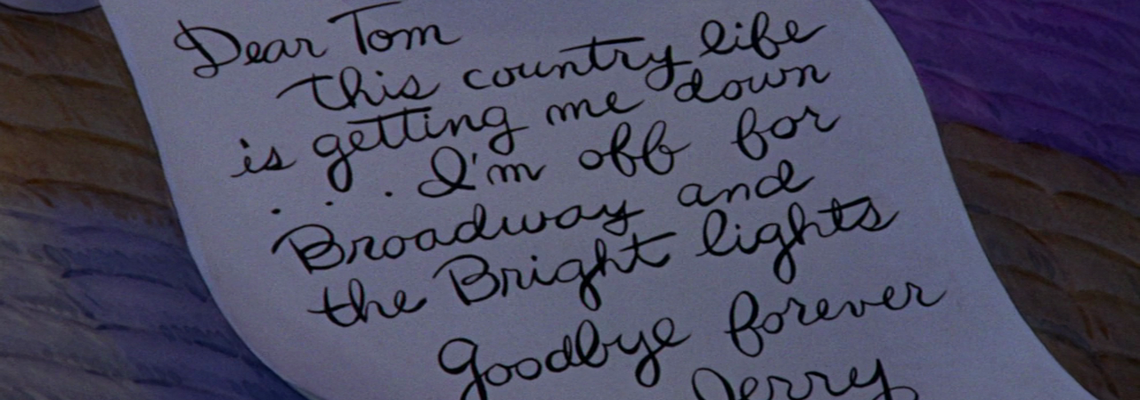 Dear Tom
this country life
is getting me down
. . . I'm off for
Broadway and
the Bright lights
Goodbye forever
Jerry